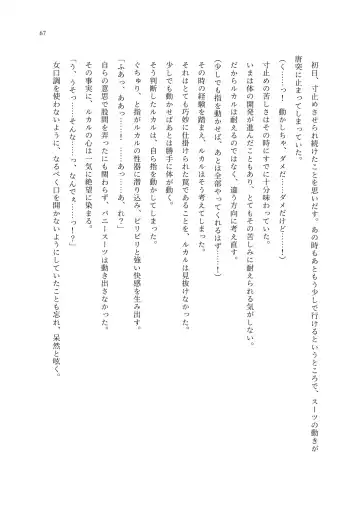 初日、寸止めさせられ続けたことを思いだす。あの時もあともう少しで行けるというところで、スーツの動きが
唐突に止まっていた。
（く……っ！　動かしちゃ、ダメだ……ダメだけど……！）
寸止めの苦しさはその時にすでに十分味わっていた。
いまは体の開発が進んだこともあり、とてもその苦しみに耐えられる気がしない。
だからルカルは耐えるのではなく、違う方向に考え直す。
（少しでも指を動かせば、あとは全部やってくれるはず……！）
その時の経験を踏まえ、ルカルはそう考えてしまった。
それはとても巧妙に仕掛けられた罠であることを、ルカルは見抜けなかった。
少しでも動かせばあとは勝手に体が動く。
そう判断したルカルは、自ら指を動かしてしまった。
ぐちゅり、と指がルカルの性器に潜り込み、ビリビリと強い快感を生み出す。
「ふあっ、ああっ……！　あっ……あ、れ？」
自らの意思で股間を弄ったにも関わらず、バニースーツは動き出さなかった。
その事実に、ルカルの心は一気に絶望に染まる。
「う、うそっ……そんなっ……っ、なんでぇ……っ？！」
女口調を使わないように、なるべく口を開かないようにしていたことも忘れ、呆然と呟く。
67